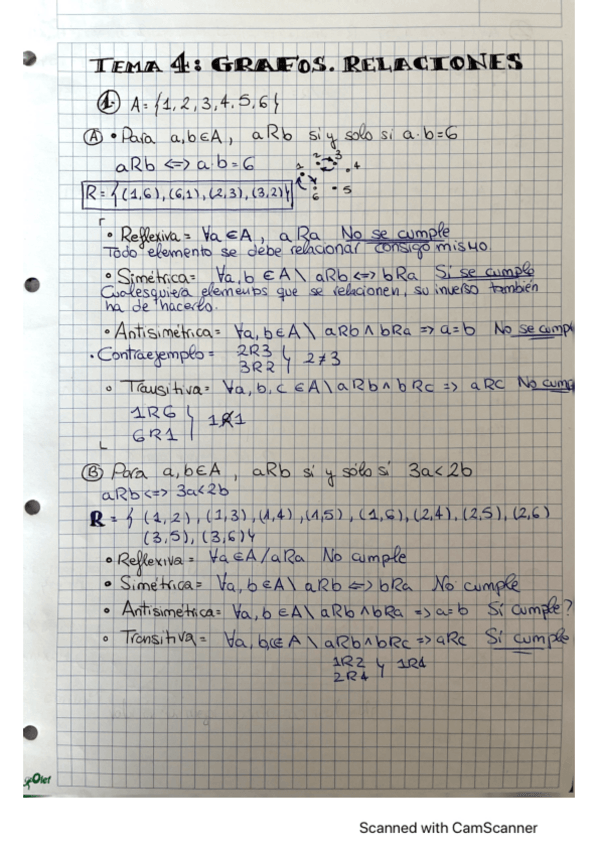 TEMA 4: GRAFOS. RELACIONES
1. A = {1, 2, 3, 4, 5, 6}
A • Para a,b∈A, aRb si y solo si a·b=6
aRb <=> a·b = 6
R = {(1,6), (6,1), (2,3), (3,2)}
1 2 3 4 5 6
• Reflexiva = ∀a∈A, aRa No se cumple
Todo elemento se debe relacionar consigo mismo.
• Simétrica = ∀a,b ∈A \ aRb <=> bRa Sí se cumple
Cualesquiera elementos que se relacionen, su inverso también
ha de hacerlo.
• Antisimétrica = ∀a,b∈A \ aRb ∧ bRa => a=b No se cumpl
• Contraejemplo = 2R3
3R2 } 2≠3
• Transitiva = ∀a,b,c ∈A \ aRb ∧ bRc => aRC No cump
1R6
6R1 } 1R̸1
B Para a,b∈A, aRb sí y sólo sí 3a<2b
aRb <=> 3a<2b
R = { (1,2), (1,3), (1,4), (1,5), (1,6), (2,4), (2,5), (2,6)
(3,5), (3,6)}
• Reflexiva = ∀a∈A/aRa No cumple
• Simétrica = ∀a,b∈A \ aRb <=> bRa No cumple
• Antisimétrica = ∀a,b∈A \ aRb ∧ bRa => a=b Sí cumple?
• Transitiva = ∀a,b,c∈A \ aRb ∧ bRc => aRc Sí cumple
1R2
2R4 } 1R4
Olef
Scanned with CamScanner